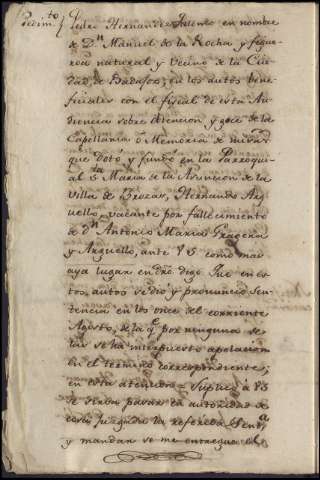 Pedim.to Pedro Hernandez Puente en nombre
de D.n Manuel de la Rocha y figue
roa natural y vecino de la Ciu
dad de Badajoz, en los autos bene
ficiales con el fiscal de esta Au
diencia sobre obtencion y goce de la
Capellania o Memoria de misas
que dotó y fundó en la Parroqui
al S.ta Maria de la Asuncion de la
Villa de Brozas, Hernando Ar
guello, vacante por fallecimiento
de D.n Antonio Maria Gragera
y Arguello, ante VS como mas
aya lugar en dro digo: Que en es
tos autos se dio y pronunció Sen
tencia en los once del corriente
Agosto, de la q.e por ninguno se
las se ha interpuesto apelacion
en el termino correspondiente;
en esta atencion = Suplico a VS
se sirva pasar en autoridad de
cosa juzgada la referida Sent.a
y mandar se me entregue el